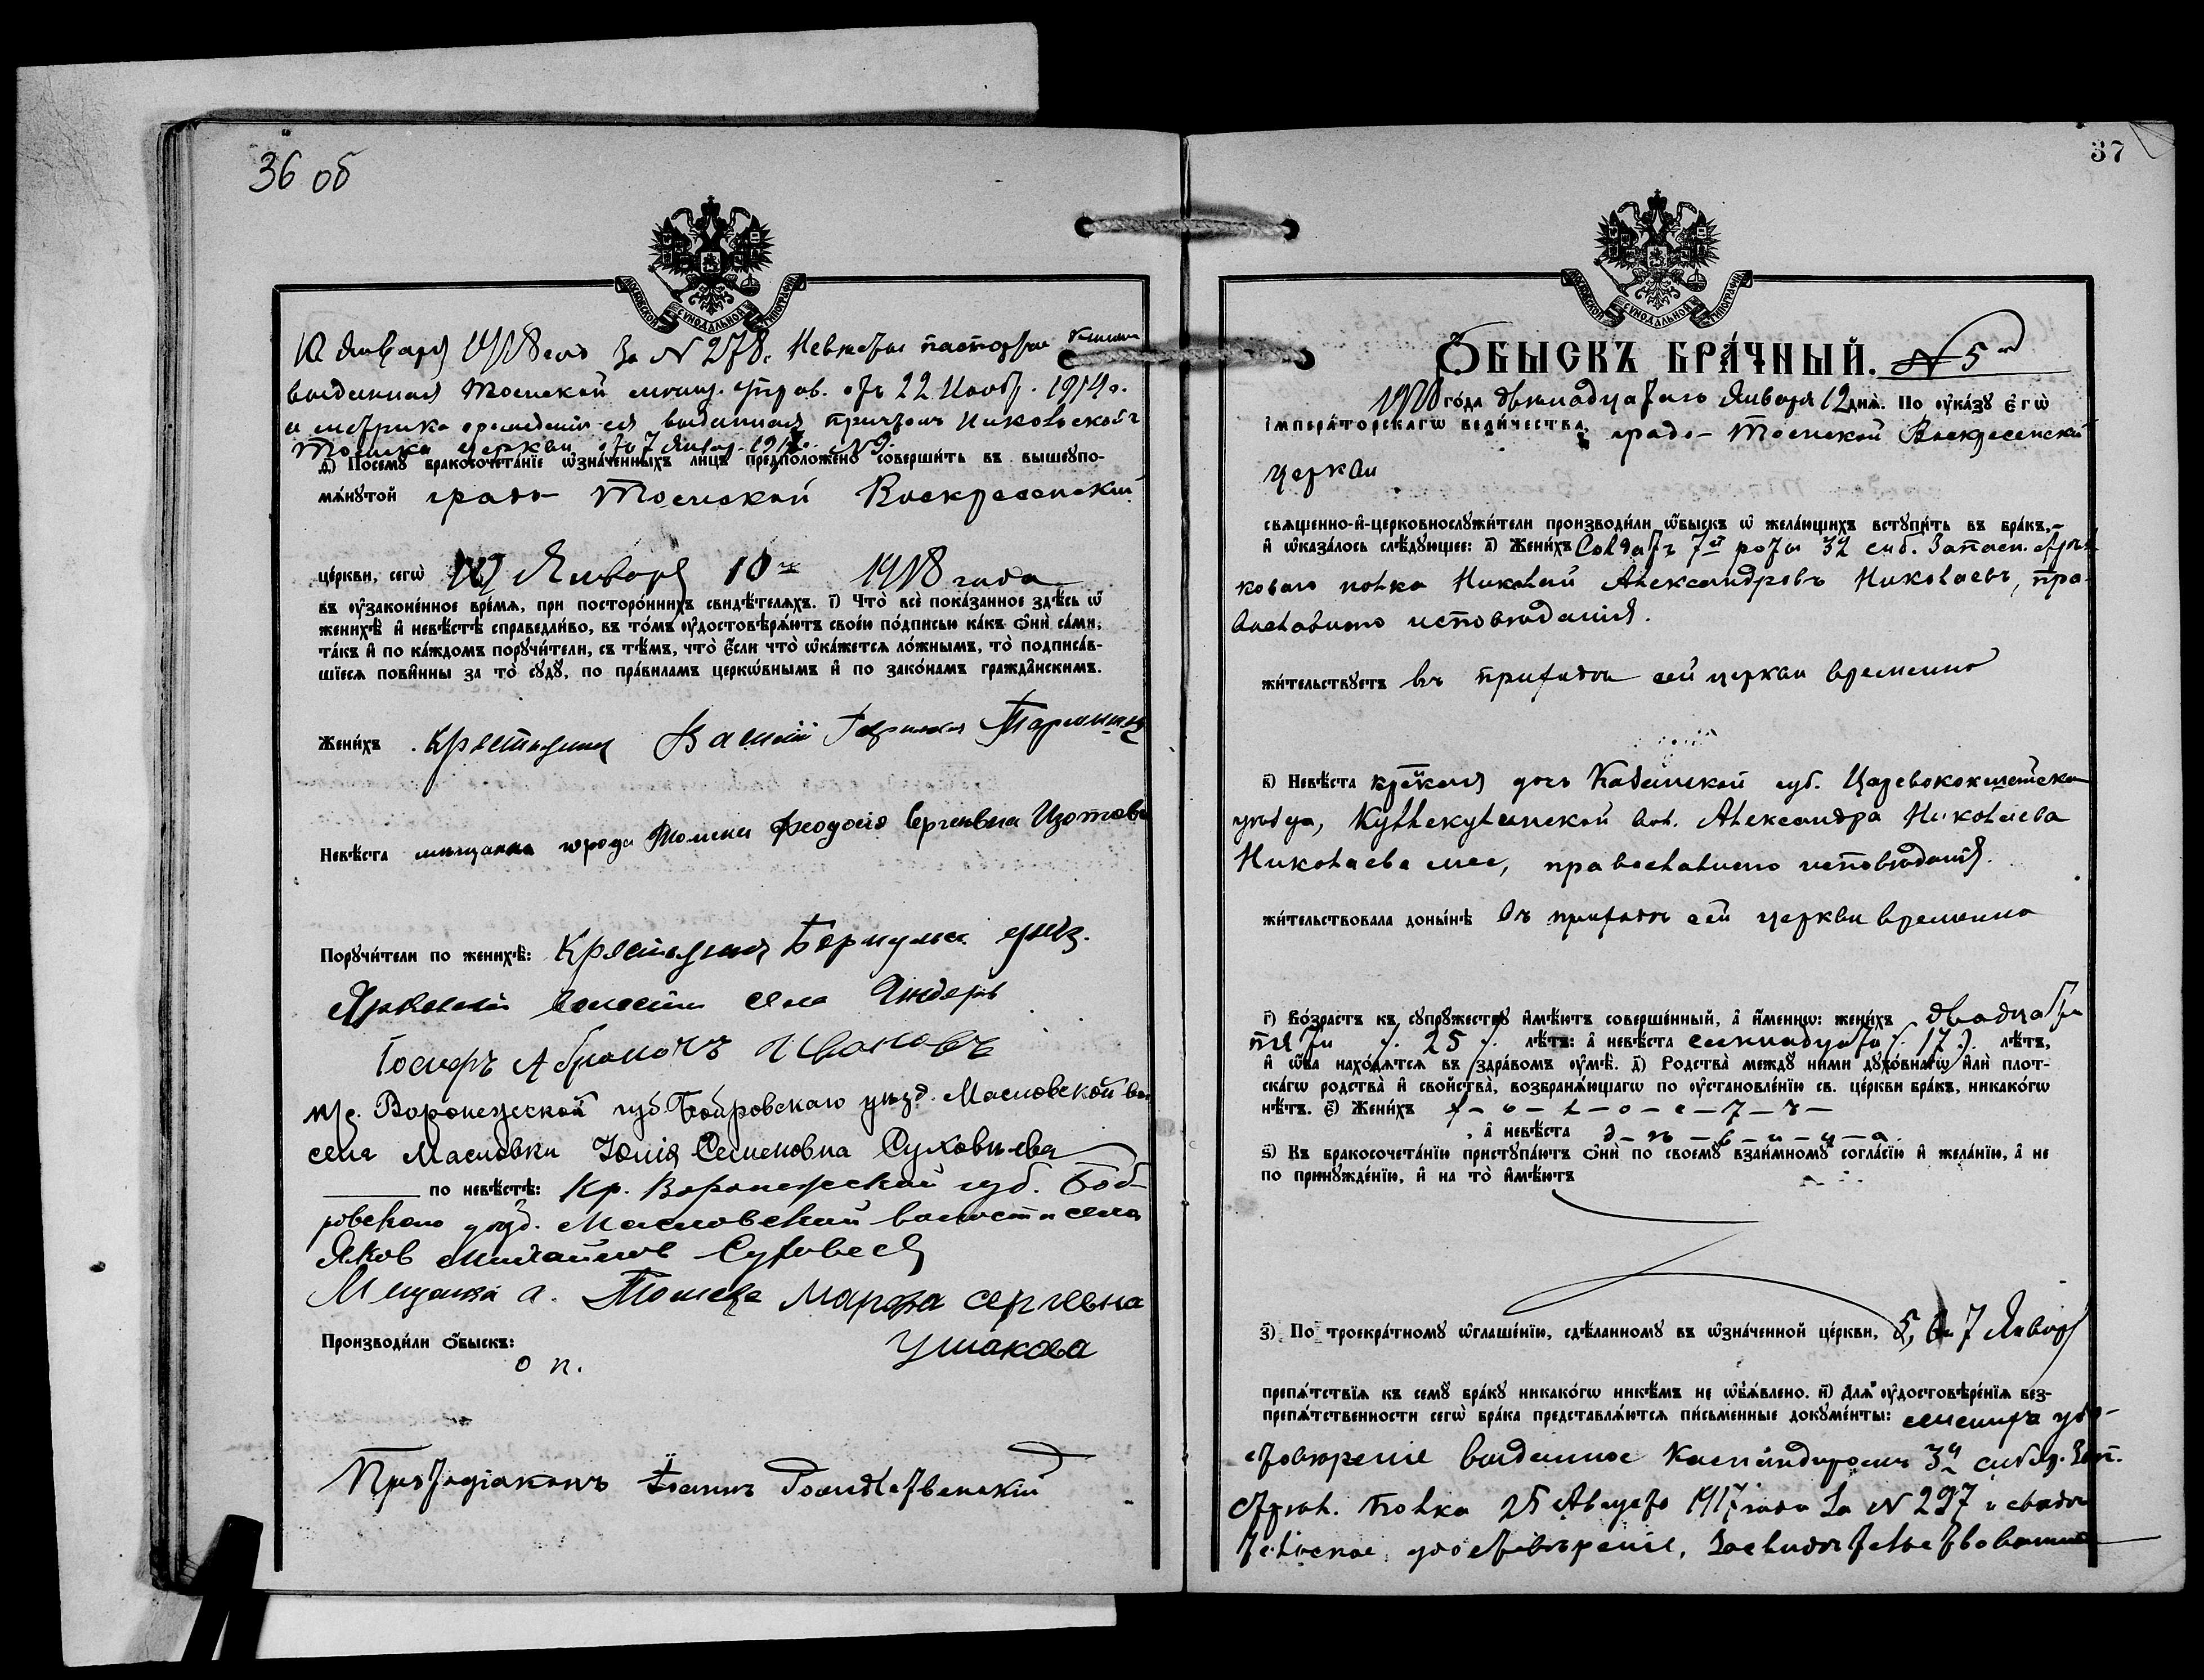 36 об
МОСКОВСКОЙ СѴНОДАЛЬНОЙ ТИПОГРАФІИ
10 Января 1918 года за N 278. Невесты паспортная книжка
выданная Томской мѣщ. управ. отъ 22 Нояб. 1914 г.
и метрика о рожденіи ея выданная причтомъ Никольской г.
Томска церкви отъ 7 Январ. 191 г. N 9.
Ѳ) Посемꙋ бракосочетаніе ѡзначенныхъ лицъ предположено совершить въ вышеꙋпо-
мянꙋтой градо-Томской Воскресенской
церкви, сегѡ Января 10 1918 года
въ оузаконенное время, при постороннихъ свидѣтеляхъ. І) Что все показанное здѣсь ѡ
женихѣ и невѣстѣ справедливо, въ томъ оудостовѣряютъ своею подписью какъ ѡни сами,
такъ и по каждомъ порꙋчители, съ тѣмъ, что если что ѡкажется ложнымъ, то подписав-
шіеся повинны за то сꙋдꙋ, по правиламъ церковнымъ и по законамъ гражданскимъ.
Женихъ Крестьянинъ
Невѣста мѣщанка города Томска Феодосія Сергеевна Изотова
Порꙋчители по женихѣ: Крестьянинъ уѣз.
волости села
Иосифъ Абрамовъ Ивановъ
кр. Воронежской губ. Бобровскаго уѣзд. Масловской вол
села Масловки Юлія Семеновна Суховѣева
по невѣстѣ: Кр. Воронежской губ. Боб-
ровскаго уѣзд. Масловской волости села
Яков Михайлов
Мещанка г. Томска Марфа Сергевна
Ушакова
Производили ѡбыскъ:
о п.
Протодіаконъ Іоаннъ Рождественскій
37
МОСКОВСКОЙ СѴНОДАЛЬНОЙ ТИПОГРАФІИ
ѠБЫСКЪ БРАЧНЫЙ. N 5
1918 года двѣнадцатаго Января 12 дня. По оуказꙋ егѡ
императорскагѡ величества, градо-Томской Воскресенской
церкви
священно-и-церковнослꙋжители производили ѡбыскъ ѡ желающихъ встꙋпить въ бракъ,
и ѡказалось слѣдꙋющее: а) Женихъ Солдатъ 7й роты 32 сиб. Запасн. стрѣл
коваго полка Николай Александровъ Николаевъ, пра-
вославнаго исповѣданія.
жительствꙋетъ въ приходѣ сей церкви временно
в) Невѣста дочь Казанской губ. Царевококшайскаго
уѣзда, вол. Александра Николаева
Николаева, православнаго исповѣданія.
жительствовала донынѣ въ приходѣ сей церкви временно
г) Возрастъ къ сꙋпрꙋжествꙋ имѣютъ совершенный, а именнѡ: женихъ двадцати
пяти /. 25 /. лѣтъ: а невѣста семнадцати /. 17 /. лѣтъ,
и ѡба находятся въ здравомъ оумѣ. д) Родства междꙋ ними дꙋховнагѡ или плот-
скагѡ родства и свойства, возбраняющагѡ по оустановленію св. церкви бракъ, никакогѡ
нѣтъ. е) Женихъ х-о-л-о-с-т-ъ-
, а невѣста д-ѣ-в-и-ц-а
ѕ) Къ бракосочетанію пристꙋпаютъ ѡни по своемꙋ взаимномꙋ согласію и желанію, а не
по принꙋжденію, и на то имѣютъ
з) По троекратномꙋ ѡглашенію, сдѣланномꙋ въ ѡзначенной церкви, 5, 6 и 7 Января
препятствія къ семꙋ бракꙋ никакогѡ никѣмъ не ѡбъявлено. и) Для оудостовѣренія без-
препятственности сегѡ брака представляются письменные докꙋменты: удо-
стовѣреніе выданное Командиромъ сиб. Зап.
стрѣл. полка 25 Августа 1917 года за N 297 и свидѣ
тельское удостовѣреніе, засвидѣтельствованное